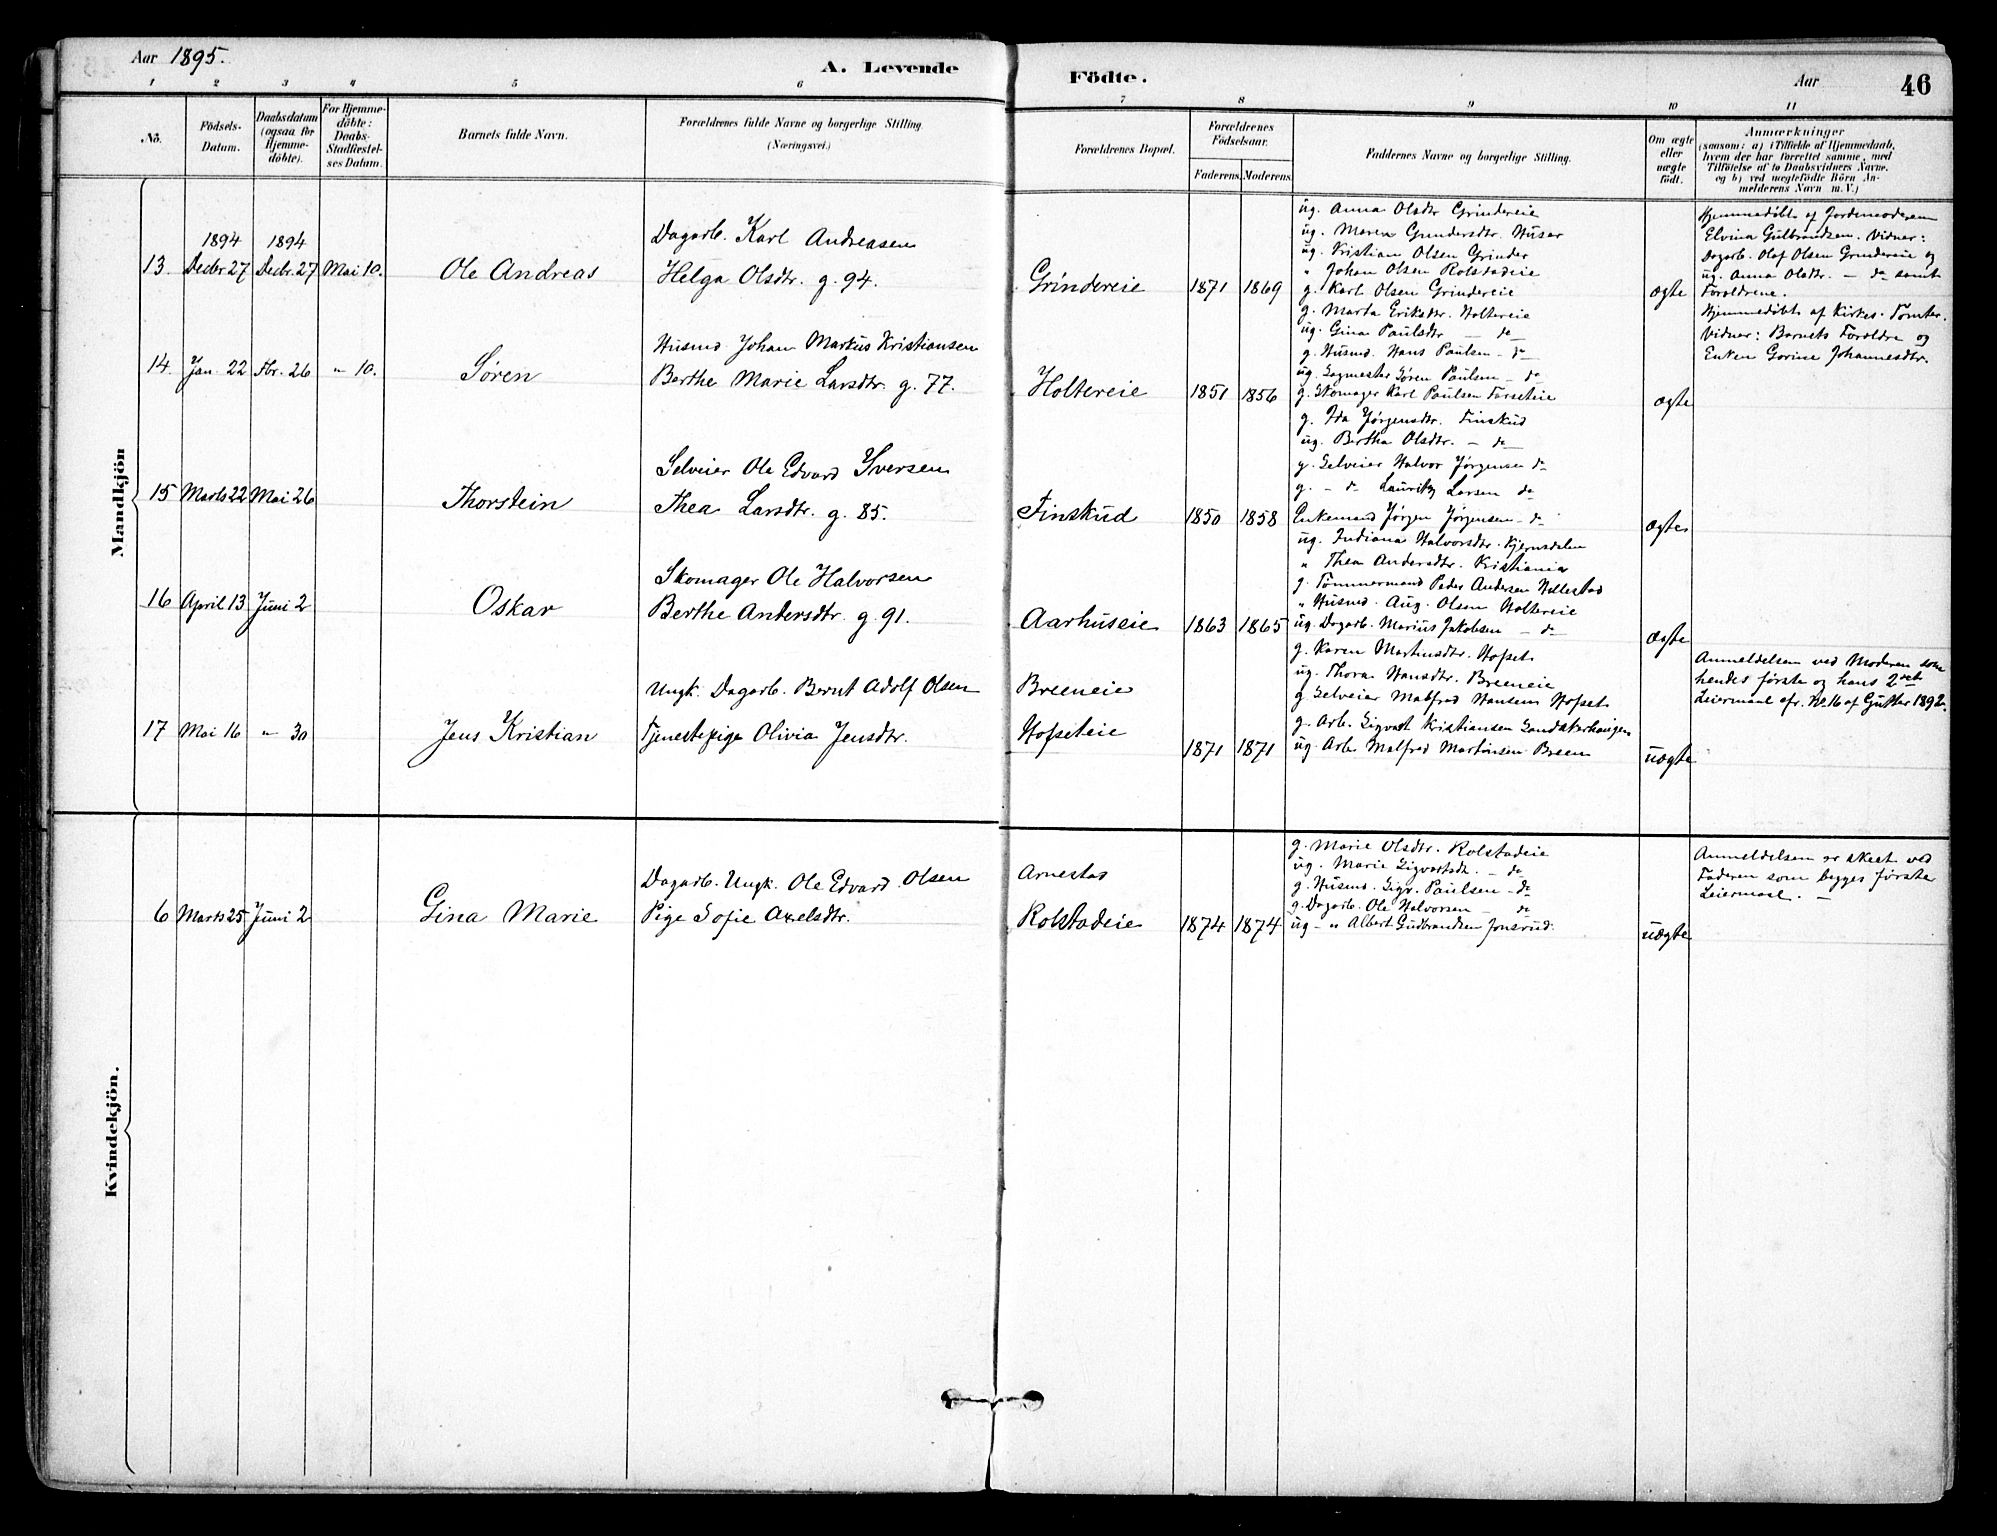 Aar 1895.
A. Levende
Födte.
Aar
46
1 2 3 4 5 6 7 8 9 10 11
No.
Födsels-
Datum.
Daabsdatum
(ogsaa for
Hjemme-
döbte).
For Hjemme-
döbte:
Daabs-
Stadfæstel-
ses Datum.
Barnets fulde Navn.
Forældrenes fulde Navne og borgerlige Stilling.
(Næringsvei.)
Forældrenes Bopæl.
Forældrenes
Födselsaar.
Faderens. Moderens.
Faddernes Navne og borgerlige Stilling.
Om ægte
eller
uægte
födt.
Anmærkninger
(saasom: a) i Tilfælde af Hjemmedaab,
hvem der har forrettet samme, med
Tilföielse af to Daabsvidners Navne.
og b) ved uægtefödte Börn An-
melderens Navn m. V.)
Mandkjön
1894 1894
13. Decbr 27 Decbr. 27 Mai 10.
Ole Andreas
Dagarb. Karl Andreasen
Helga Olsdtr. g. 94.
Grindereie
1871 1869
ug. Anna Olsdtr Grindereie
ug. Maren Gundersdtr. Huser
ug. Kristian Olsen Grinder
" Johan Olsen Rolstadeie
g. Karl Olsen Grindereie
ægte
Hjemmedøbt af Jordemoderen
Elvina Gulbrandsen. Vidner:
Dagarb. Olaf Olsen Grindereie og
ug. Anna Olsdtr. – do samt
Forældrene.
14. Jan. 22 Fbr. 26 " 10.
Søren
Husmd Johan Markus Kristiansen
Berthe Marie Larsdtr. g. 77.
Holtereie
1851 1856
g. Marta Eriksdtr. Holtereie
ug. Gina Paulsdtr – do
g. Husmd. Hans Paulsen – do
ug. Sagmester Søren Paulsen – do
g. Skomager Karl Paulsen Fosseteie
ægte
Hjemmedøbt af Kirkes. Tomter.
Vidner: Barnets Forældre og
Enken Gorine Johannesdtr.
15 Marts 22 Mai 26
Thorstein
Selveier Ole Edvard Iversen
Thea Larsdtr. g. 85.
Finskud
1850 1858
g. Ida Jørgensdtr. Finskud
ug. Birtha Olsdtr. – do
g. Selveier Halvor Jørgensen do
g. – do Lauritz Larsen do
Enkemand Jørgen Jørgensen – do
ægte
16 April 13 Juni 2
Oskar
Skomager Ole Halvorsen
Berthe Andersdtr. g. 91.
Aarhuseie
1863 1865
ug. Indiana Halvorsdtr. Kjernsdalen
" Thea Andersdtr. Kristiania
g. Tømmermand Peder Andersen Hellestad
" Husmd. Aug. Olsen Holtereie
ug. Dagarb. Marius Jakobsen – do
ægte
17 Mai 16 " 30
Jens Kristian
Ungk. Dagarb. Bernt Adolf Olsen
Tjenestepige Olivia Jensdtr.
Breeneie
Hofseteie
1871 1871
g. Karen Martinsdtr. Hofset
ug. Thora Hansdtr. Breeneie
g Selveier Malfred Hansen Hofset
g. Arb. Sigvart Kristiansen Sandakerhaugen
ug. Arb. Malfred Martinsen Breen
uægte
Anmeldelsen ved Moderen som
hendes første og hans 2det
Leiermaal cfr. No 16 af Gutter 1892.
Kvindekjön.
6 Marts 25 Juni 2
Gina Marie
Dagarb. Ungk. Ole Edvard Olsen
Pige Sofie Axelsdtr.
Arnestad
Rolstadeie
1874 1874
g. Marie Olsdtr. Rolstadeie
ug. Marie Sigvartsdtr. – do
g. Husmd. Sigv. Paulsen – do
g. Dagarb. Ole Halvorsen – do
ug – " Albert Gudbrandsen Jonsrud.
uægte
Anmeldelsen er skeet ved
Faderen som begges første
Leiermaal. –